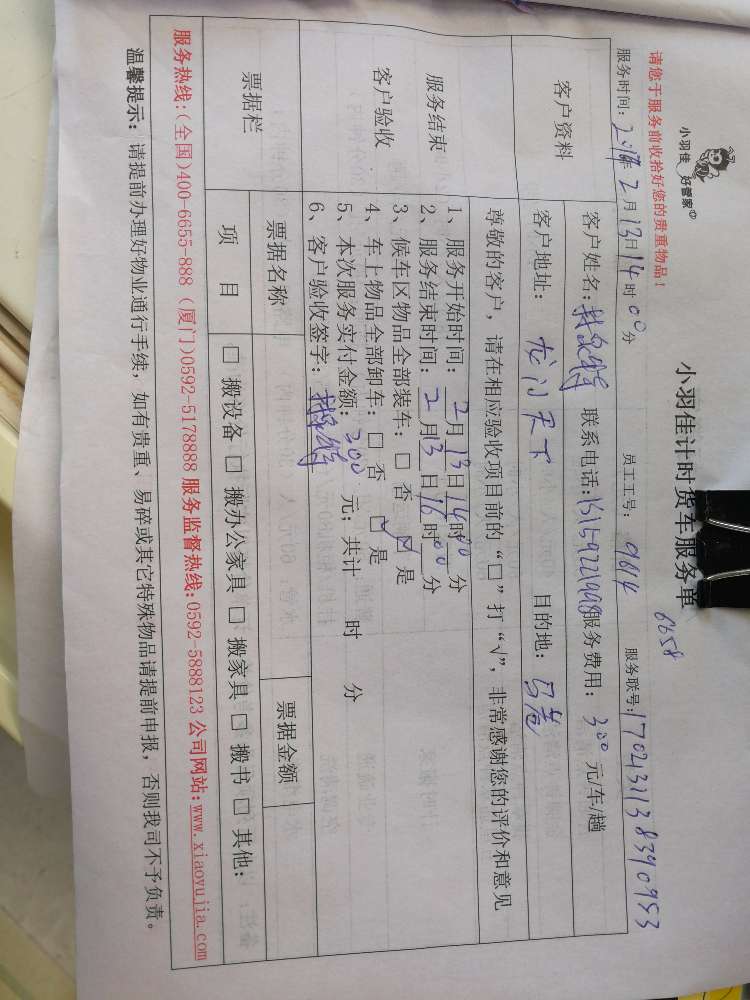 小羽佳 好管家
小羽佳计时货车服务单
6658
请您于服务前收拾好您的贵重物品！
服务时间: 年2月13日14时00分 员工工号: 9614 服务联号:1702131138390953
客户资料
客户姓名: 联系电话:15159221998服务费用: 300元/车/趟
客户地址: 龙门天下 目的地: 马巷
服务结束
客户验收
尊敬的客户，请在相应验收项目前的“□”打“√”，非常感谢您的评价和意见
1、服务开始时间: 2月13日14时00分
2、服务结束时间: 2月13日16时00分
3、候车区物品全部装车: □ 否 ☑ 是
4、车上物品全部卸车: □ 否 ☑ 是
5、本次服务实付金额: 300元; 共计 时 分
6、客户验收签字:
票据栏
票据名称 票据金额
项目 □ 搬设备 □ 搬办公家具 □ 搬家具 □ 搬书 □ 其他:
服务热线:(全国)400-6655-888 (厦门)0592-5178888 服务监督热线:0592-5888123 公司网站:www.xiaoyujia.com
温馨提示: 请提前办理好物业通行手续，如有贵重、易碎或其它特殊物品请提前申报，否则我司不予负责。